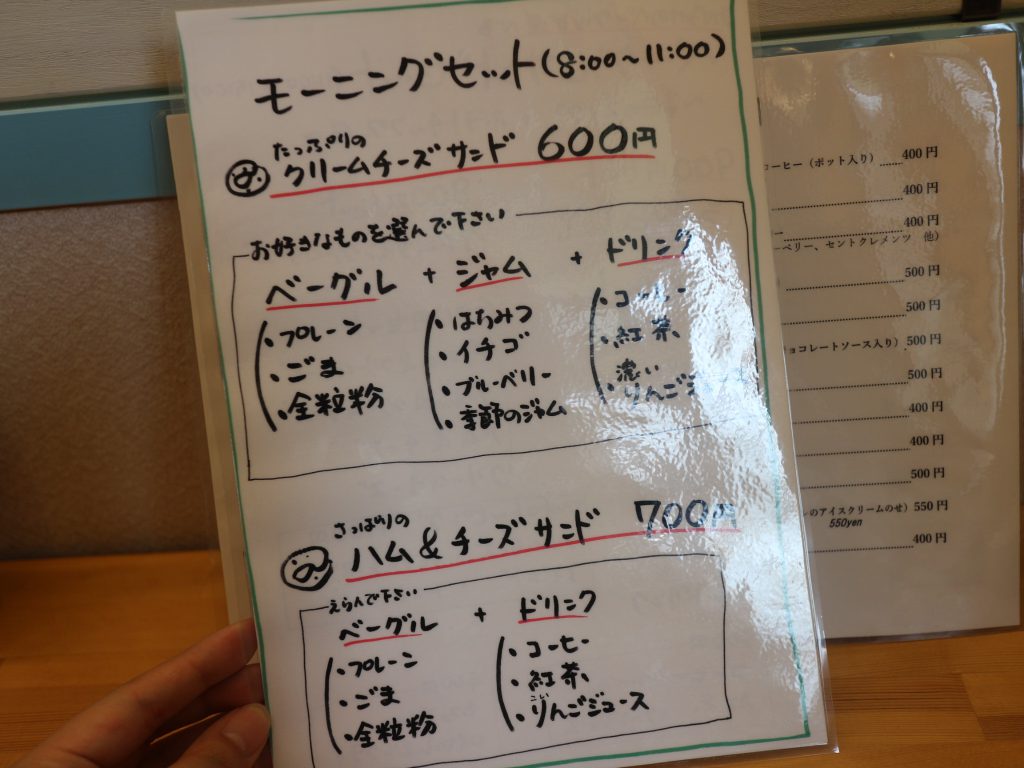 モーニングセット(8:00〜11:00)
たっぷりの
クリームチーズサンド 600円
お好きなものを選んで下さい
ベーグル + ジャム + ドリンク
・プレーン
・ごま
・全粒粉
・はちみつ
・イチゴ
・ブルーベリー
・季節のジャム
・コーヒー
・紅茶
・濃い
りんごジュース
さっぱりの
ハム&チーズサンド 700円
えらんで下さい
ベーグル + ドリンク
・プレーン
・ごま
・全粒粉
・コーヒー
・紅茶
・りんごジュース
コーヒー(ポット入り)......400円
400円
400円
ベリー、セントクレメンツ 他)
500円
500円
チョコレートソース入り).500円
500円
400円
400円
500円
のアイスクリームのせ)550円
550yen
400円